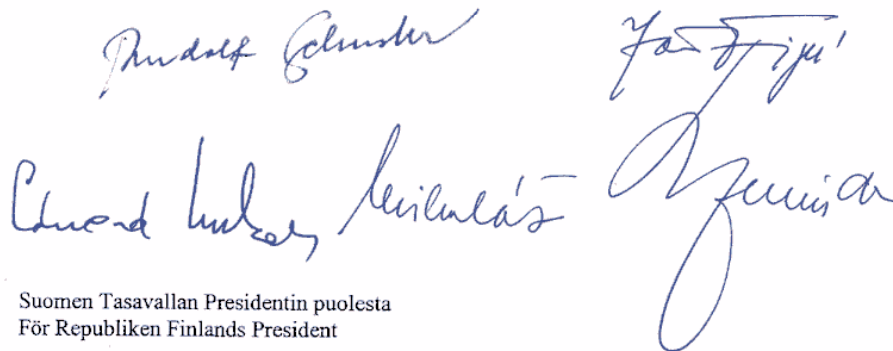 Rudolf Schuster
Eduard Kukan Mikuláš
Suomen Tasavallan Presidentin puolesta
För Republiken Finlands President